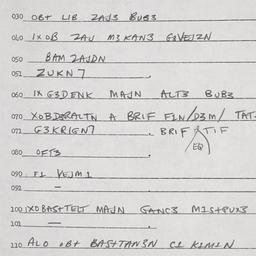 030 OBT LIB ZAJ3 BUB3
040 IXOB ZAJ M3KAN3 G3VEJZN
050 BAM ZAJDN
051 ZUKN7
060 IX G3DENK MAJN ALT3 BUB3
070 XOBDERALTN A BRIF FLN/D3M/ TAT-
072 G3KRIGN7 . BRIF + TIF
EQ
080 OFT3 .
090 FI VEJM1
092 –
100 IXOBASTTELT MAJN GANC3 MISTPUX3
101 – .
110 ALO OBT BASTTAN3N CI KIMIN